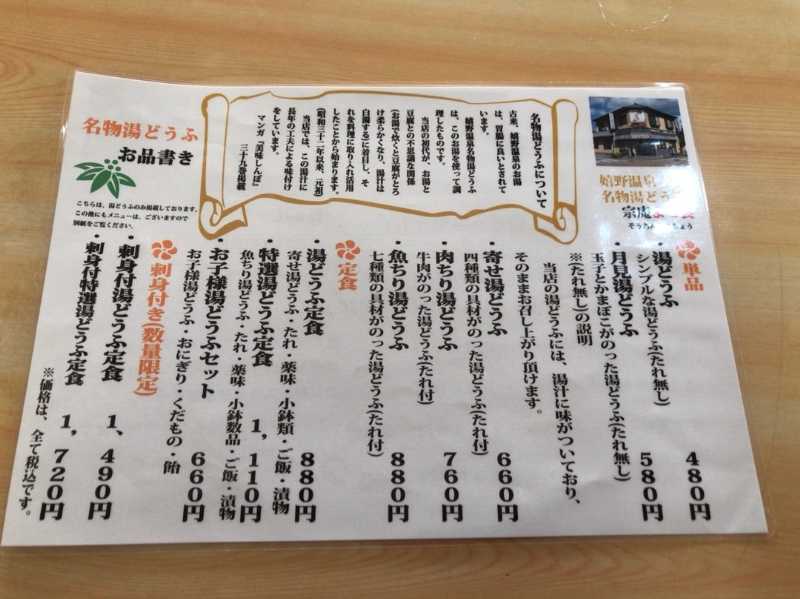 嬉野温泉
名物湯どう
宗庵
名物湯どうふについて
古来、嬉野温泉のお湯
は、胃腸に良いとされて
います。
嬉野温泉名物湯どうふ
は、このお湯を使って調
理したものです。
当店の初代が、お湯と
豆腐との不思議な関係
(お湯で炊くと豆腐がとろ
け柔らかくなり、湯汁は
白濁する)に着目し、そ
れを料理に取り入れ活用
したことから始まります。
(昭和三十二年以来、元祖)
当店では、この湯汁に
長年の工夫による味付け
をしています。
マンガ「美味しんぼ」
三十九巻掲載
名物湯どうふ
お品書き
こちらは、湯どうふのみ掲載しております。
この他にもメニューは、ございますので
別紙をご覧ください。
単品
・湯どうふ 480円
シンプルな湯どうふ(たれ無し)
・月見湯どうふ 580円
玉子とかまぼこがのった湯どうふ(たれ無し)
※(たれ無し)の説明
当店の湯どうふには、湯汁に味がついており、
そのままお召し上がり頂けます。
・寄せ湯どうふ 660円
四種類の具材がのった湯どうふ(たれ付)
・肉ちり湯どうふ 760円
牛肉がのった湯どうふ(たれ付)
・魚ちり湯どうふ 880円
七種類の具材がのった湯どうふ(たれ付)
定食
・湯どうふ定食 880円
寄せ湯どうふ・たれ・薬味・小鉢類・ご飯・漬物
・特選湯どうふ定食 1,110円
魚ちり湯どうふ・たれ・薬味・小鉢数品・ご飯・漬物
・お子様湯どうふセット 660円
お子様湯どうふ・おにぎり・くだもの・飴
刺身付き(数量限定)
・刺身付湯どうふ定食 1、490円
・刺身付特選湯どうふ定食 1,720円
※価格は、全て税込です。